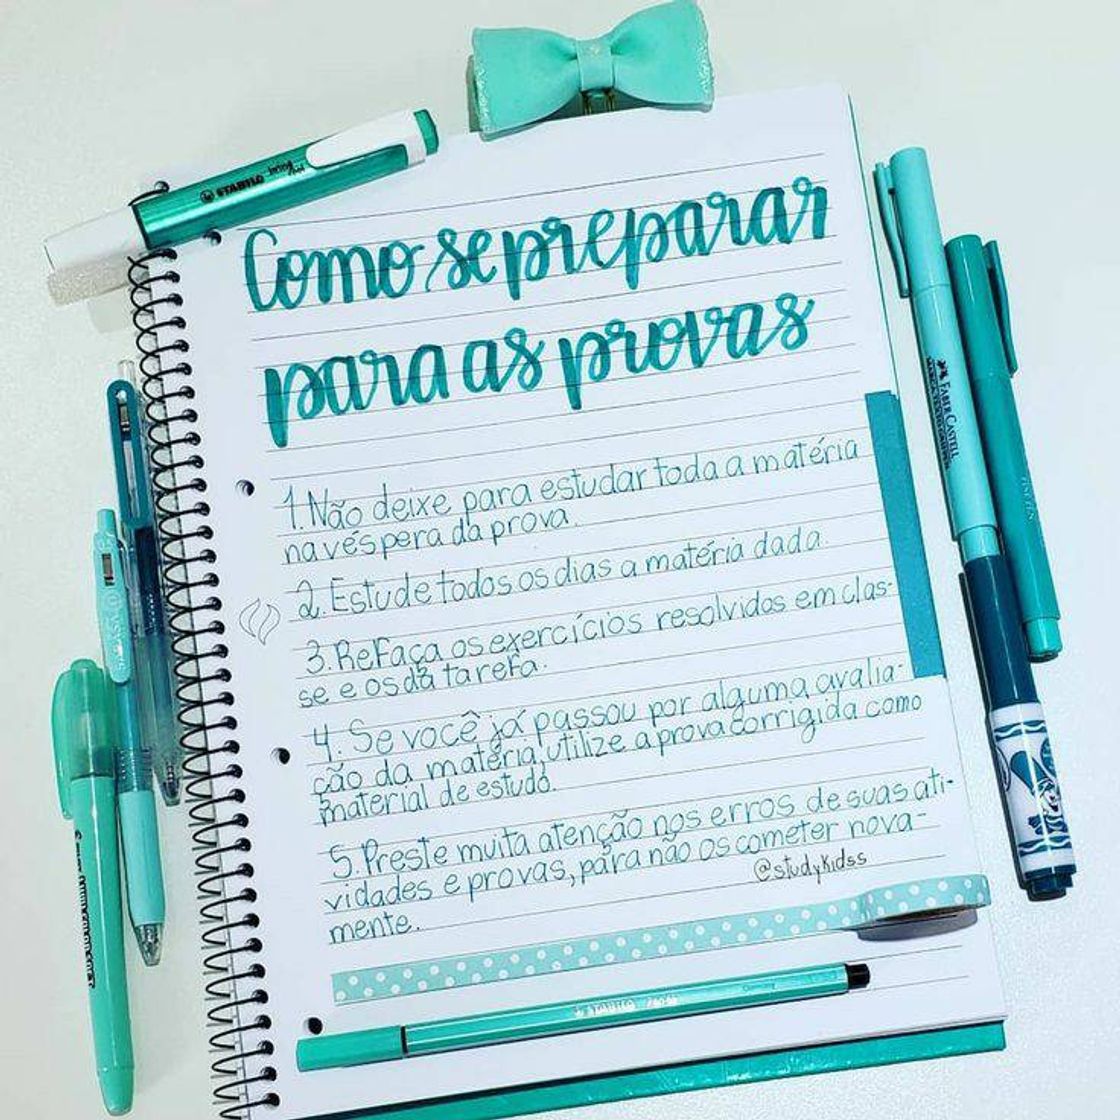 STABILO
Como se preparar
para as provas
1. Não deixe para estudar toda a matéria
na véspera da prova.
2. Estude todos os dias a matéria dada.
3. Refaça os exercícios resolvidos em clas-
se e os da tarefa.
4. Se você já passou por alguma avalia-
ção da matéria, utilize a prova corrigida como
material de estudo.
5. Preste muita atenção nos erros de suas ati-
vidades e provas, para não os cometer nova-
mente.
@studykidss
FABER CASTELL
STABILO